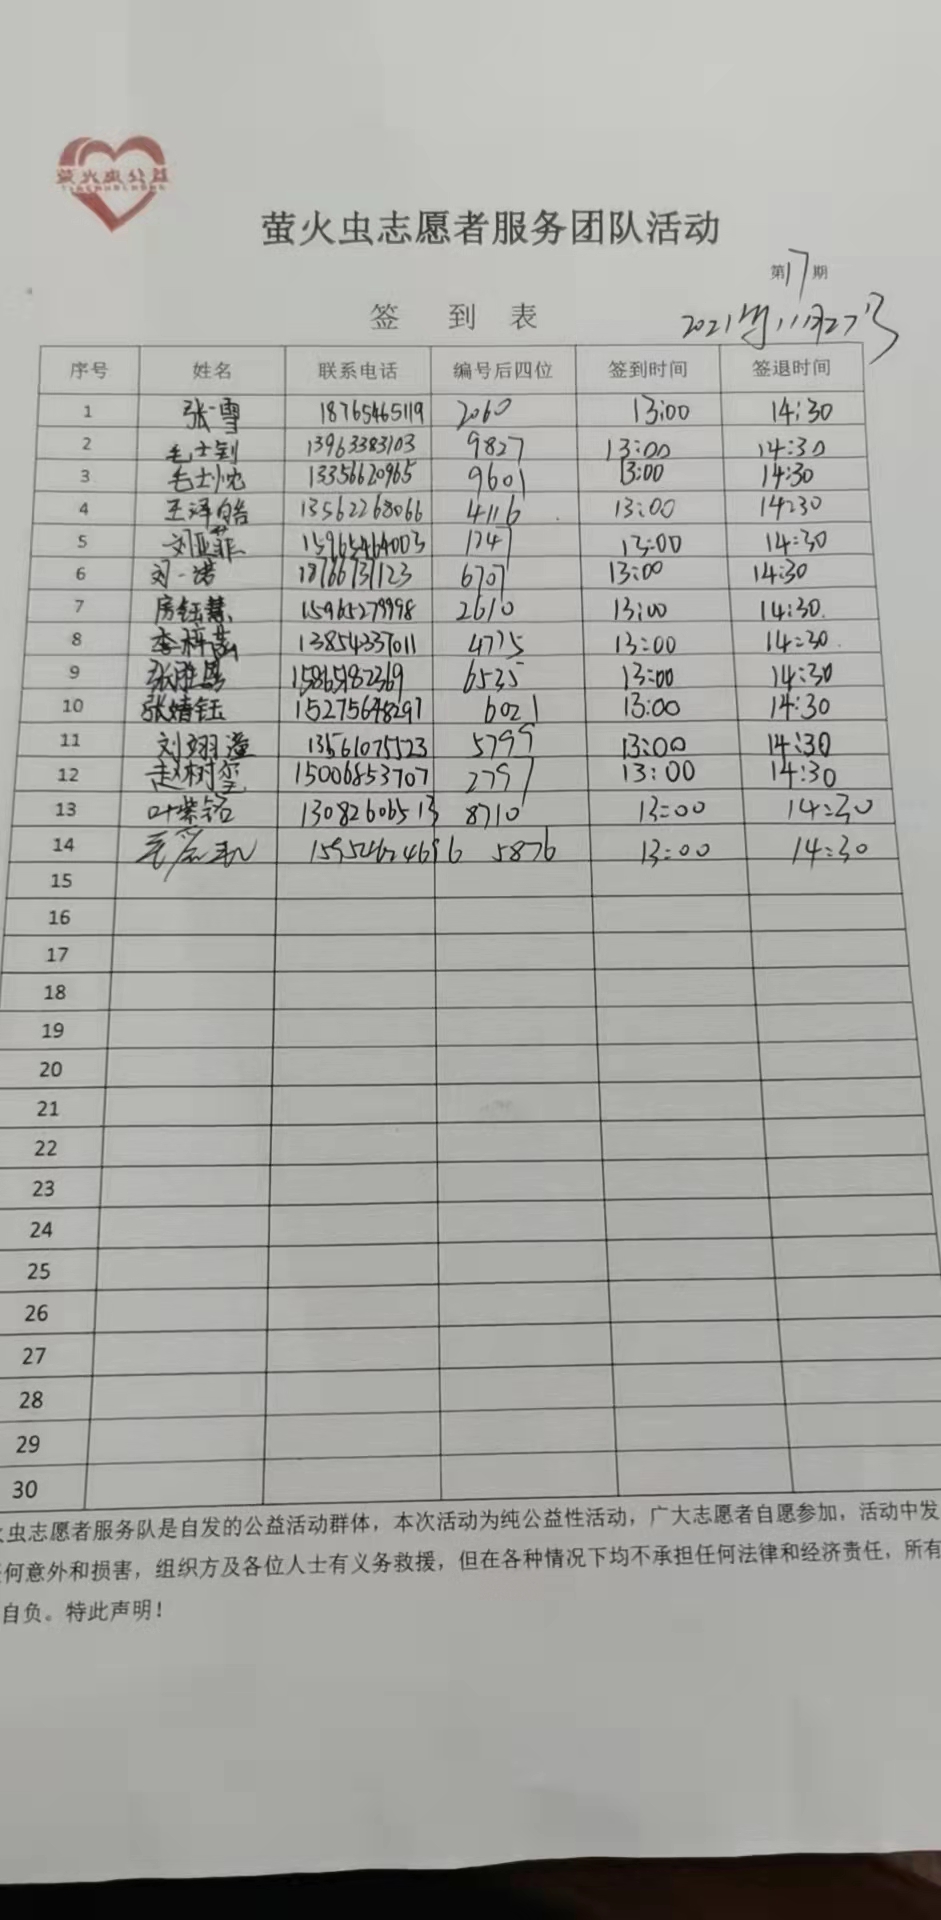 萤火虫公益
萤火虫志愿者服务团队活动
第17期
签到表
2021年11月27日
序号 姓名 联系电话 编号后四位 签到时间 签退时间
1 张雪 18765465119 2060 13:00 14:30
2 毛士钊 13963383103 9827 13:00 14:30
3 毛士忱 13356620965 9601 13:00 14:30
4 王泽皓 13562268066 4116 13:00 14:30
5 刘亚菲 15965464003 1747 13:00 14:30
6 刘一诺 18766737123 6707 13:00 14:30
7 房钰慧 2610 13:00 14:30
8 李梓菡 13854237011 4775 13:00 14:30
9 15865182369 6535 13:00 14:30
10 张婧钰 15275648297 6021 13:00 14:30
11 刘翊潼 13561075523 5799 13:00 14:30
12 赵树玺 15006853707 2797 13:00 14:30
13 叶紫铭 13082606513 8710 13:00 14:30
14 5876 13:00 14:30
15
16
17
18
19
20
21
22
23
24
25
26
27
28
29
30
火虫志愿者服务队是自发的公益活动群体，本次活动为纯公益性活动，广大志愿者自愿参加，活动中发
何意外和损害，组织方及各位人士有义务救援，但在各种情况下均不承担任何法律和经济责任，所有
自负。特此声明！